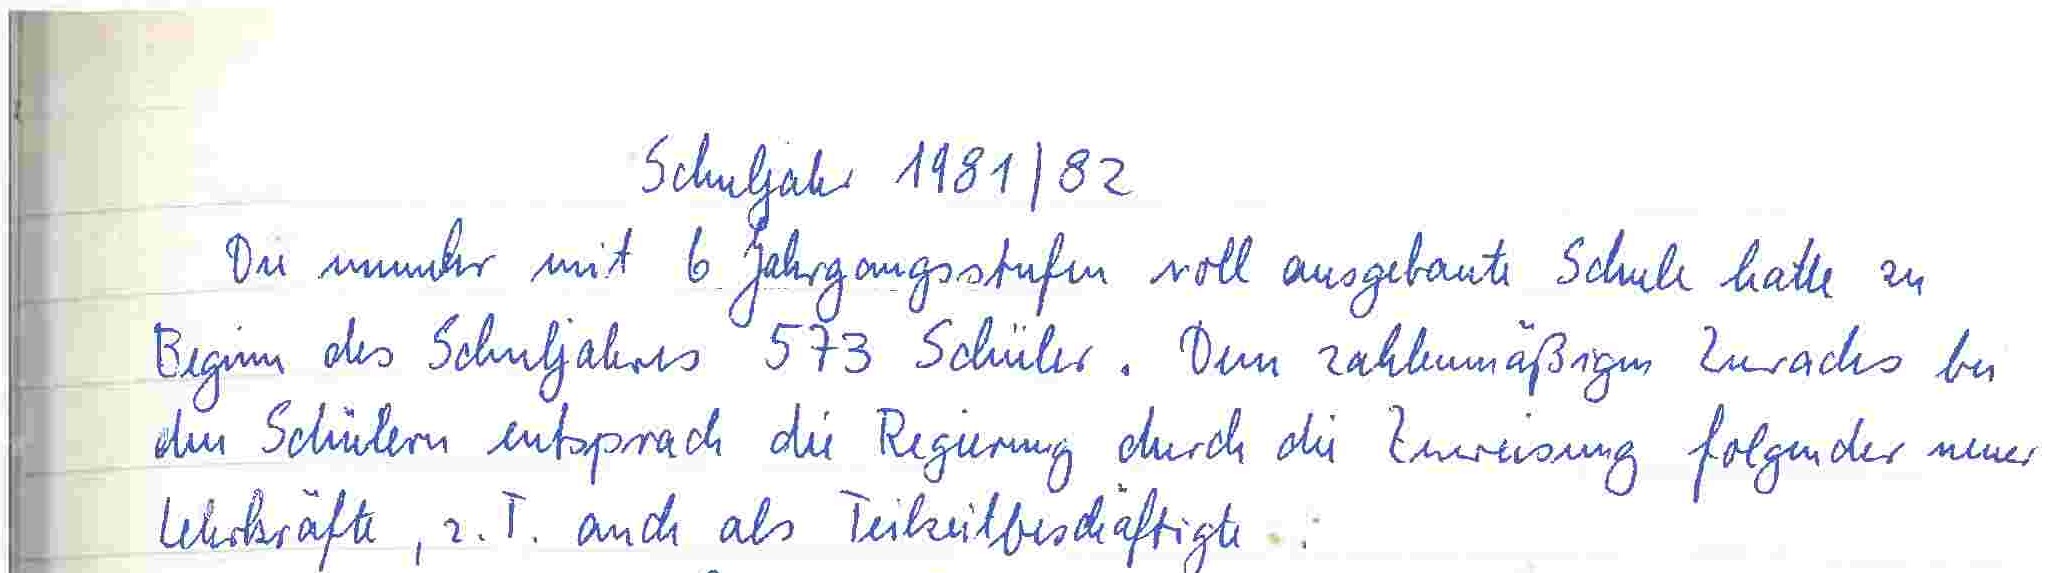 Schuljahr 1981/82
Die nunmehr mit 6 Jahrgangsstufen voll ausgebaute Schule hatte zu
Beginn des Schuljahres 573 Schüler. Dem zahlenmäßigen Zuwachs bei
den Schülern entsprach die Regierung durch die Zuweisung folgender neuer
Lehrkräfte, z.T. auch als Teilzeitbeschäftigte :